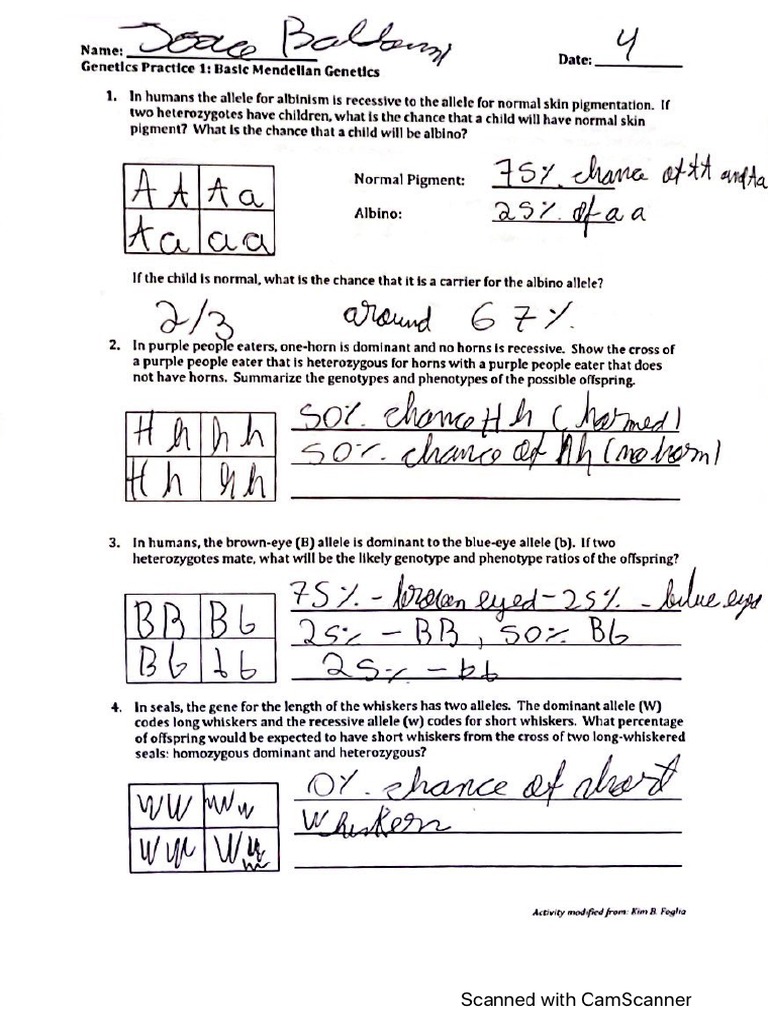 Name: Bald
Date: 4
Genetics Practice 1: Basic Mendelian Genetics
1. In humans the allele for albinism is recessive to the allele for normal skin pigmentation. If
two heterozygotes have children, what is the chance that a child will have normal skin
pigment? What is the chance that a child will be albino?
A A Aa
Aa aa
Normal Pigment: 75% chance of AA and Aa
Albino: 25% of aa
If the child is normal, what is the chance that it is a carrier for the albino allele?
2/3 around 67%
2. In purple people eaters, one-horn is dominant and no horns is recessive. Show the cross of
a purple people eater that is heterozygous for horns with a purple people eater that does
not have horns. Summarize the genotypes and phenotypes of the possible offspring.
Hh hh
Hh hh
50% chance Hh (horned)
50% chance of hh (no horn)
3. In humans, the brown-eye (B) allele is dominant to the blue-eye allele (b). If two
heterozygotes mate, what will be the likely genotype and phenotype ratios of the offspring?
BB Bb
Bb bb
75% - brown eyed - 25% - blue eyed
25% - BB, 50% Bb
25% - bb
4. In seals, the gene for the length of the whiskers has two alleles. The dominant allele (W)
codes long whiskers and the recessive allele (w) codes for short whiskers. What percentage
of offspring would be expected to have short whiskers from the cross of two long-whiskered
seals: homozygous dominant and heterozygous?
WW Ww
0% chance of short
Whiskers
Activity modified from: Kim B. Foglia
Scanned with CamScanner